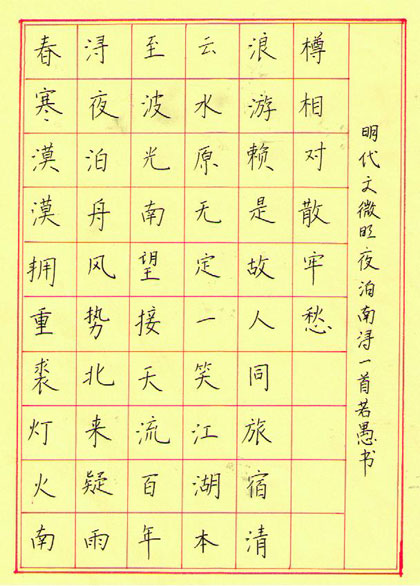 春寒漠漠拥重裘灯火南
浔夜泊舟风势北来疑雨
至波光南望接天流百年
云水原无定一笑江湖本
浪游赖是故人同旅宿清
樽相对散牢愁
明代文徵明夜泊南浔一首若愚书